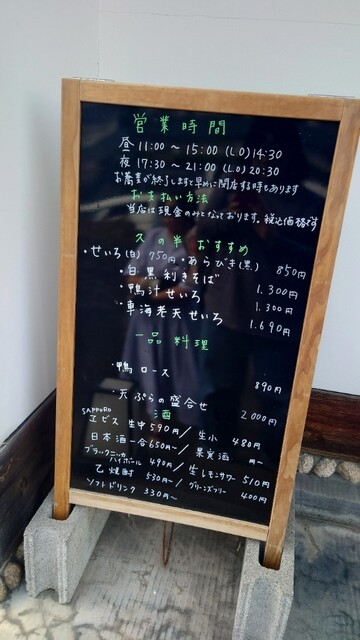 営業時間
昼 11:00 ～ 15:00 (L.O) 14:30
夜 17:30 ～ 21:00 (L.O) 20:30
お蕎麦が終了しますと早めに閉店する時もあります
お支払い方法
当店は現金のみとなっております。税込価格です
久の半 おすすめ
・せいろ(白) 750円・あらびき(黒) 850円
・白黒利きそば 1,300円
・鴨汁せいろ 1,300円
・車海老天せいろ 1,690円
一品料理
・鴨ロース 890円
・天ぷらの盛合せ 2,000円
酒
SAPPORO
ヱビス 生中590円/生小 480円
日本酒一合650円~/果実酒 円~
ブラックニッカ
ハイボール 490円/生レモンサワー 510円
乙焼酎 530円~/グリーンズフリー 400円
ソフトドリンク 330円~